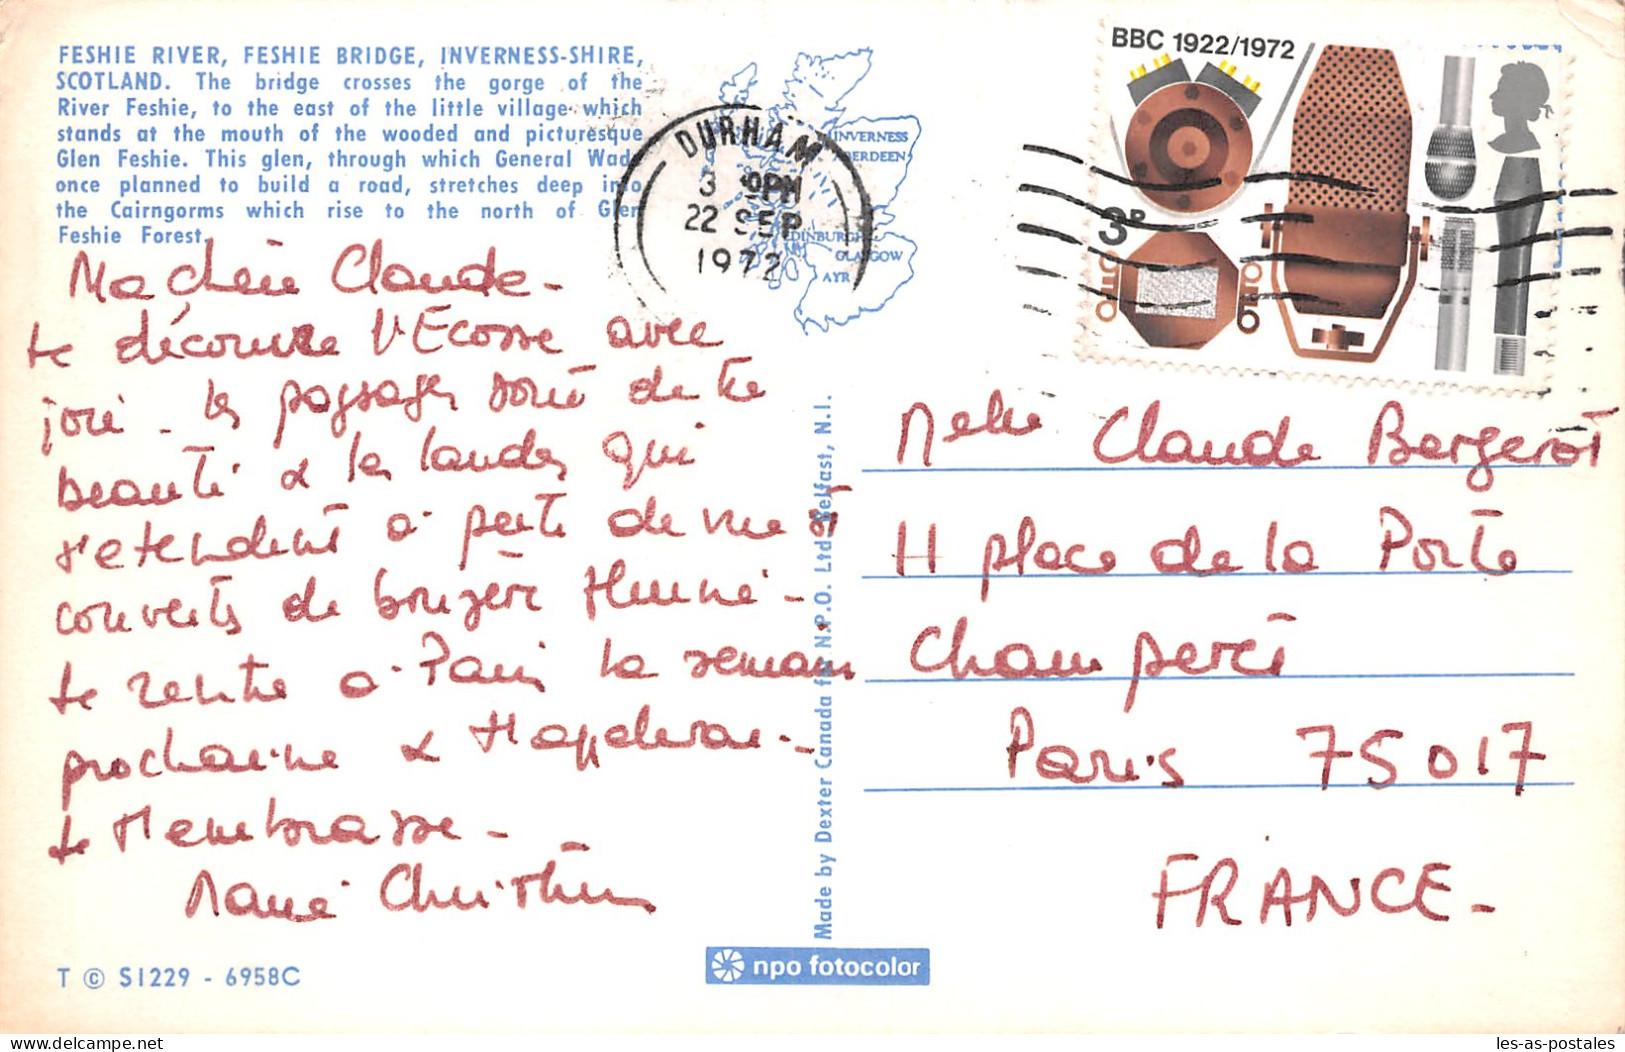 FESHIE RIVER, FESHIE BRIDGE, INVERNESS-SHIRE,
SCOTLAND. The bridge crosses the gorge of the
River Feshie, to the east of the little village which
stands at the mouth of the wooded and picturesque
Glen Feshie. This glen, through which General Wade
once planned to build a road, stretches deep into
the Cairngorms which rise to the north of Glen
Feshie Forest.
Ma chère Claude -
Je découvre l'Ecosse avec
joie - les paysages sont de toute
beauté & les landes qui
s'etendent à perte de vue st
couverts de bruyère fleurie -
Je rentre à Paris la semaine
prochaine &
Je t'embrasse -
Marie Christine
T © S1229 - 6958C
DURHAM
3 PM
22 SEP
1972
INVERNESS
ABERDEEN
EDINBURGH
GLASGOW
AYR
BBC 1922/1972
3P
Made by Dexter Canada for N.P.O. Ltd. Belfast, N.I.
npo fotocolor
Melle Claude Bergerot
11 place de la Porte
Champeret
Paris 75017
FRANCE -
les-as-postales